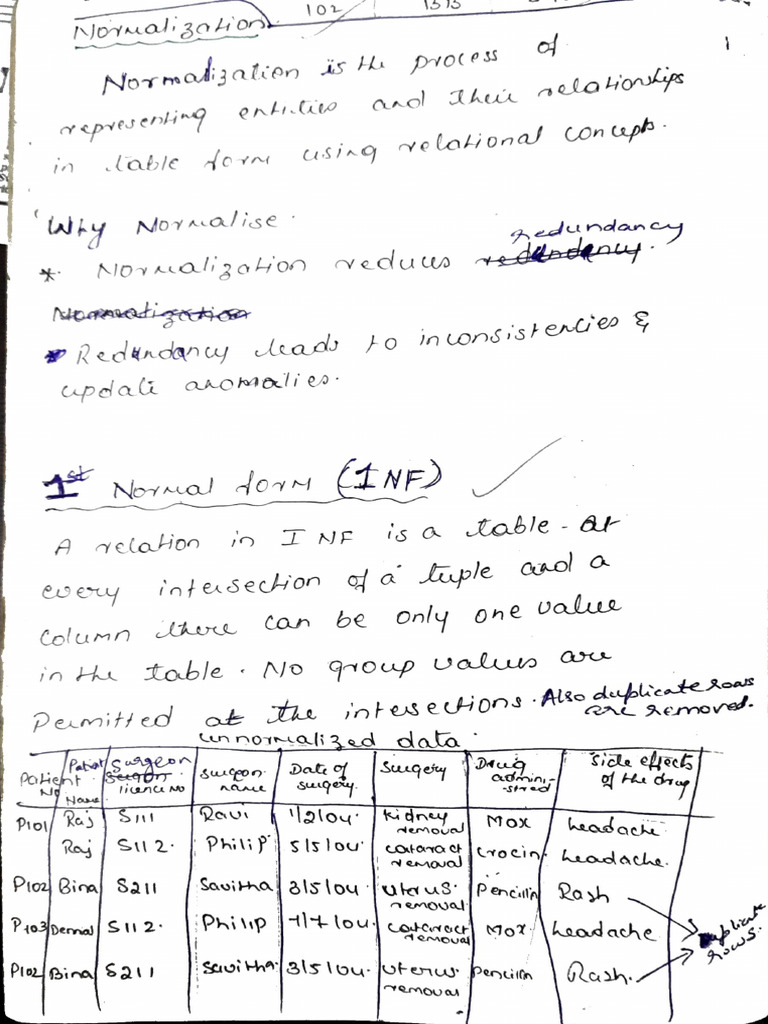 102 1515
Normalization
Normalization is the process of
representing entities and their relationships
in table form using relational concepts.
Why Normalise.
* Normalization reduces redundancy redundancy.
Normalization
* Redundancy leads to inconsistencies &
update anomalies.
1st Normal form (1NF)
A relation in 1NF is a table - at
every intersection of a tuple and a
column there can be only one value
in the table. No group values are
Permitted at the intersections. Also duplicate rows are removed.
unnormalized data.
Patient No Patient Name Surgeon licence no surgeon name Date of surgery Surgery Drug admini-stred Side effects of the drug
P101 Raj S111 Ravi 1/2/04. kidney removal Mox headache
Raj S112. Philip 5/5/04. cataract removal crocin. headache.
P102 Bina S211 Savitha 3/5/04. uterus. removal. Pencillin Rash
P103 S112. Philip 7/7/04. cataract removal Mox. headache
P102 Bina S211 Savitha. 3/5/04. uterus removal Pencillin Rash.
duplicate rows.